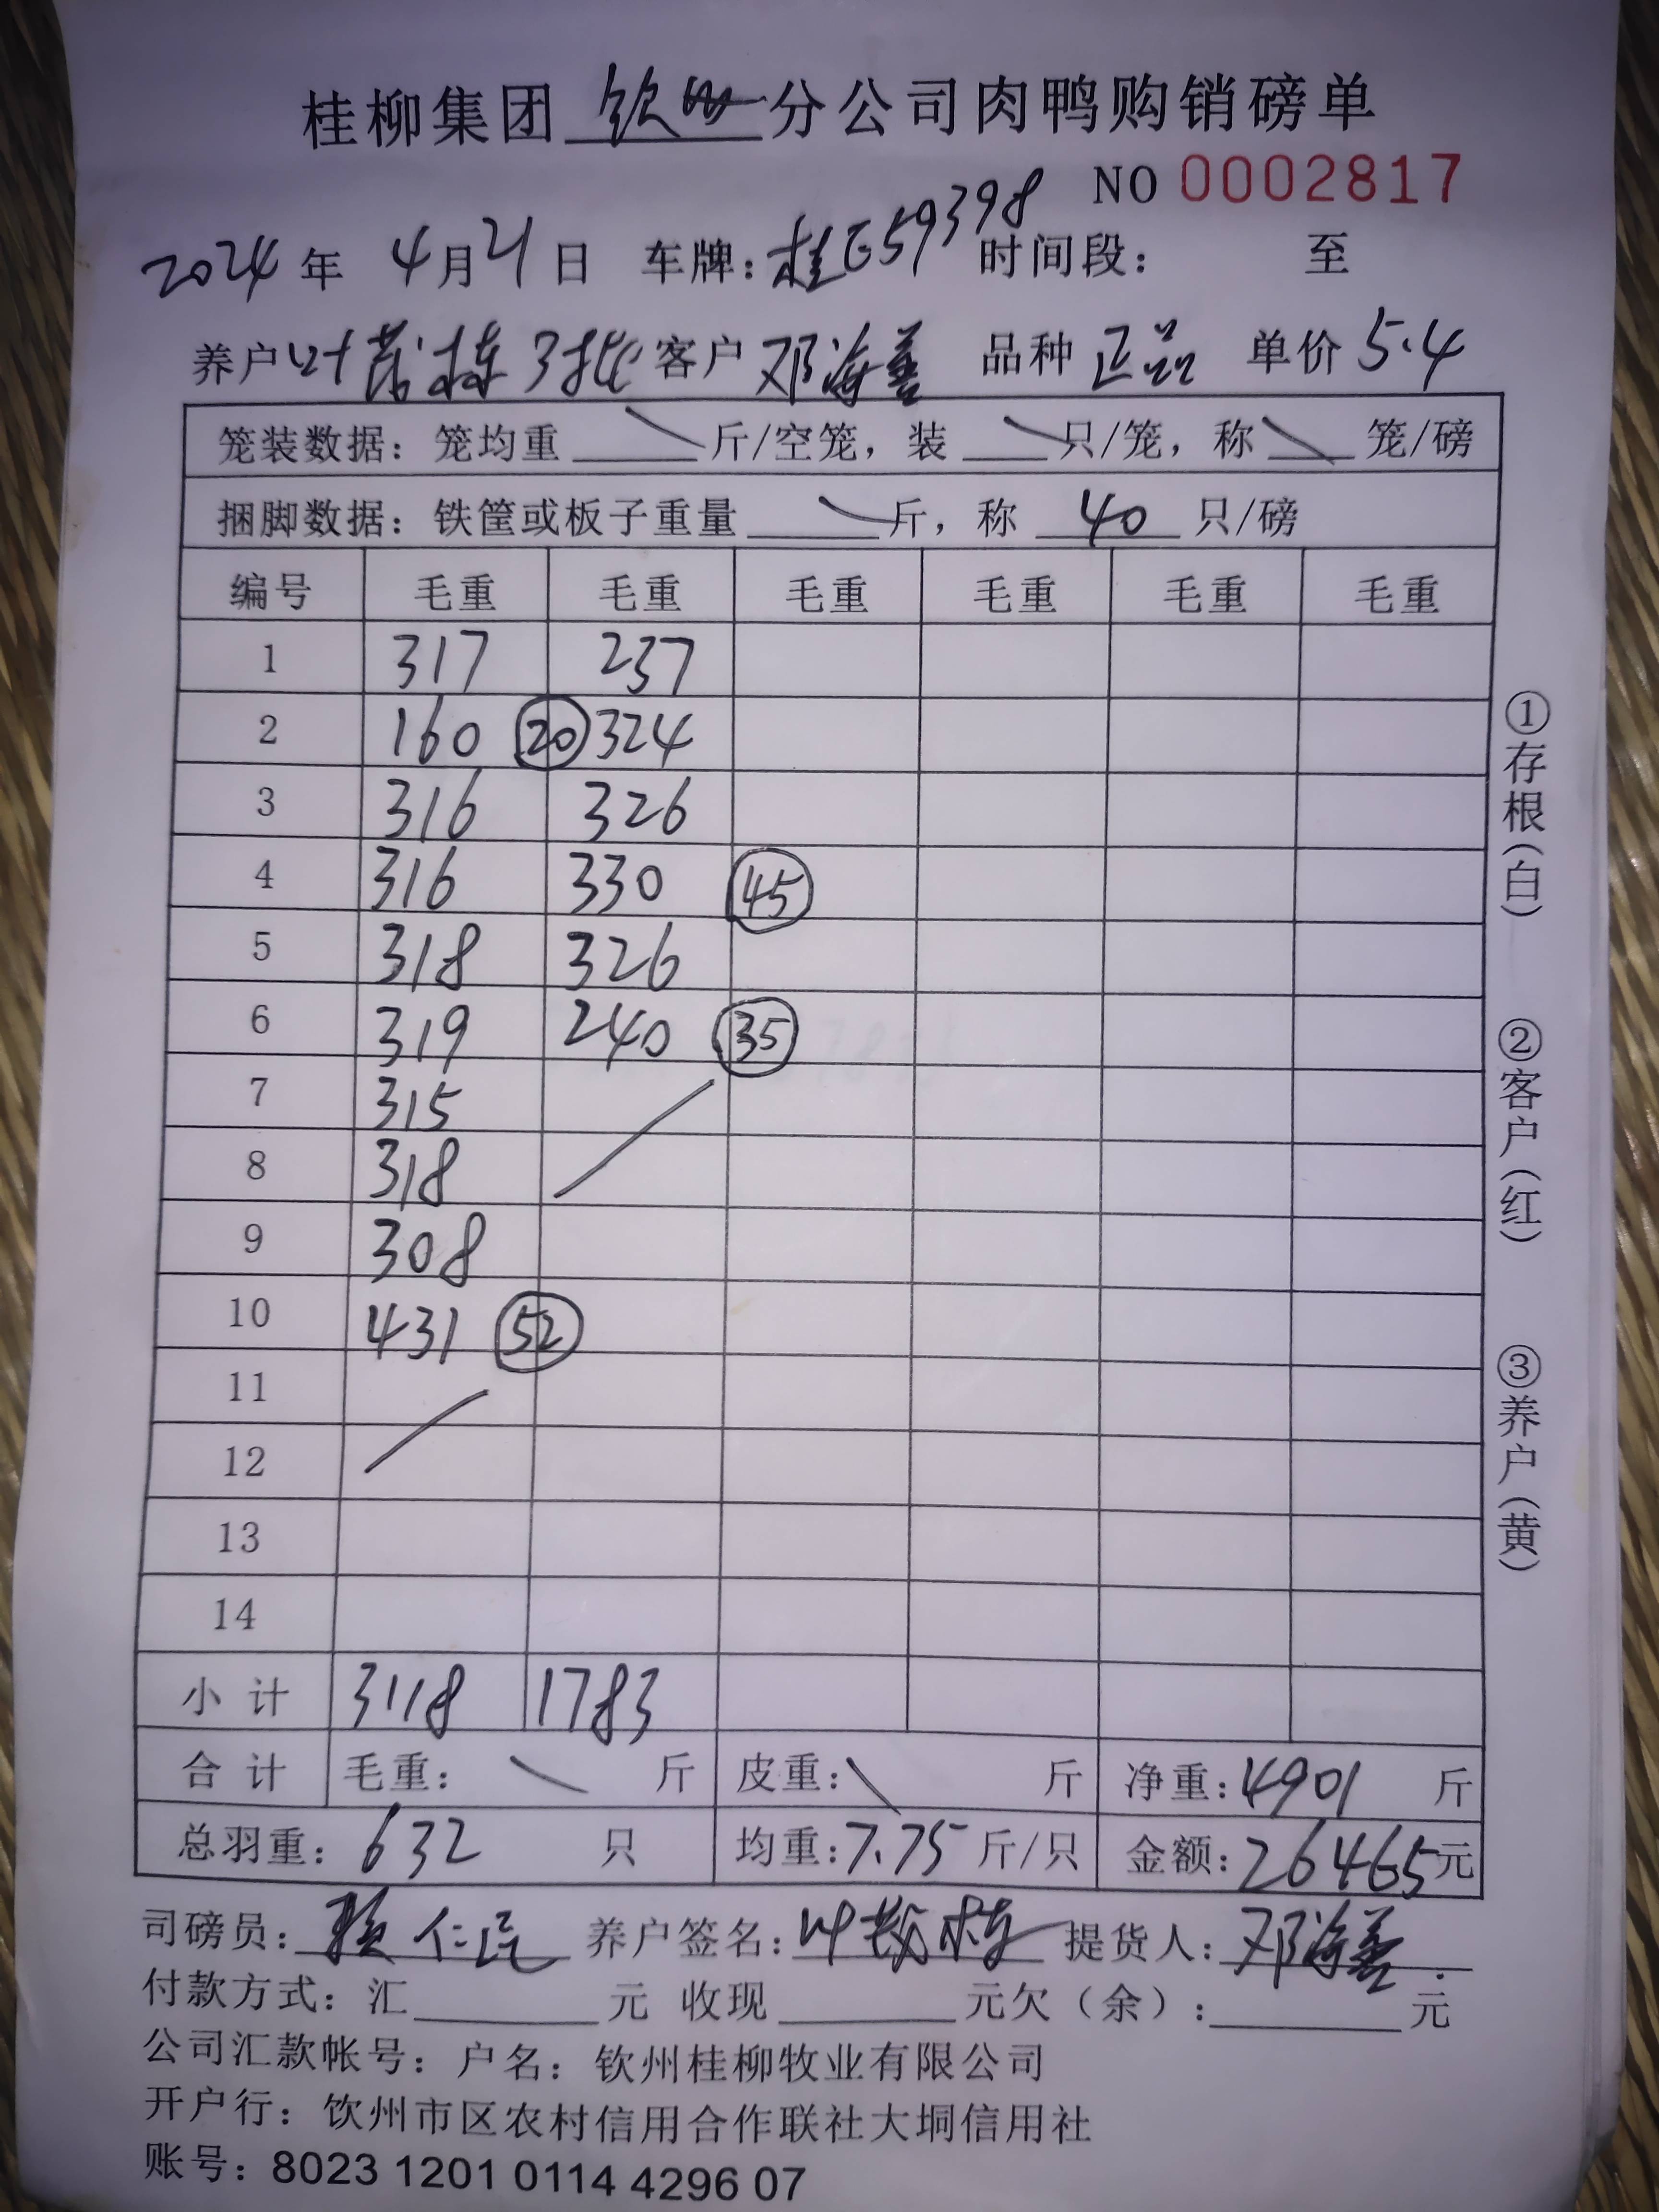 桂柳集团 钦州 分公司肉鸭购销磅单
NO 0002817
2024 年 4 月 21 日 车牌: 桂E59398 时间段: 至
养户 叶茂栋 3批 客户 邓海善 品种 正品 单价 5.4
笼装数据: 笼均重 \ 斤/空笼, 装 \ 只/笼, 称 \ 笼/磅
捆脚数据: 铁筐或板子重量 \ 斤, 称 40 只/磅
编号 毛重 毛重 毛重 毛重 毛重 毛重
1 317 237
2 160 ⑳ 324
3 316 326
4 316 330 ㊺
5 318 326
6 319 240 ㉟
7 315
8 318
9 308
10 431 52
11
12
13
14
小计 3118 1783
合计 毛重: \ 斤 皮重: \ 斤 净重: 4901 斤
总羽重: 632 只 均重: 7.75 斤/只 金额: 26465 元
司磅员: 仁 养户签名: 叶茂栋 提货人: 邓海善
付款方式: 汇 元 收现 元欠(余): 元
公司汇款帐号: 户名: 钦州桂柳牧业有限公司
开户行: 钦州市区农村信用合作联社大垌信用社
账号: 8023 1201 0114 4296 07
①存根(白)
②客户(红)
③养户(黄)